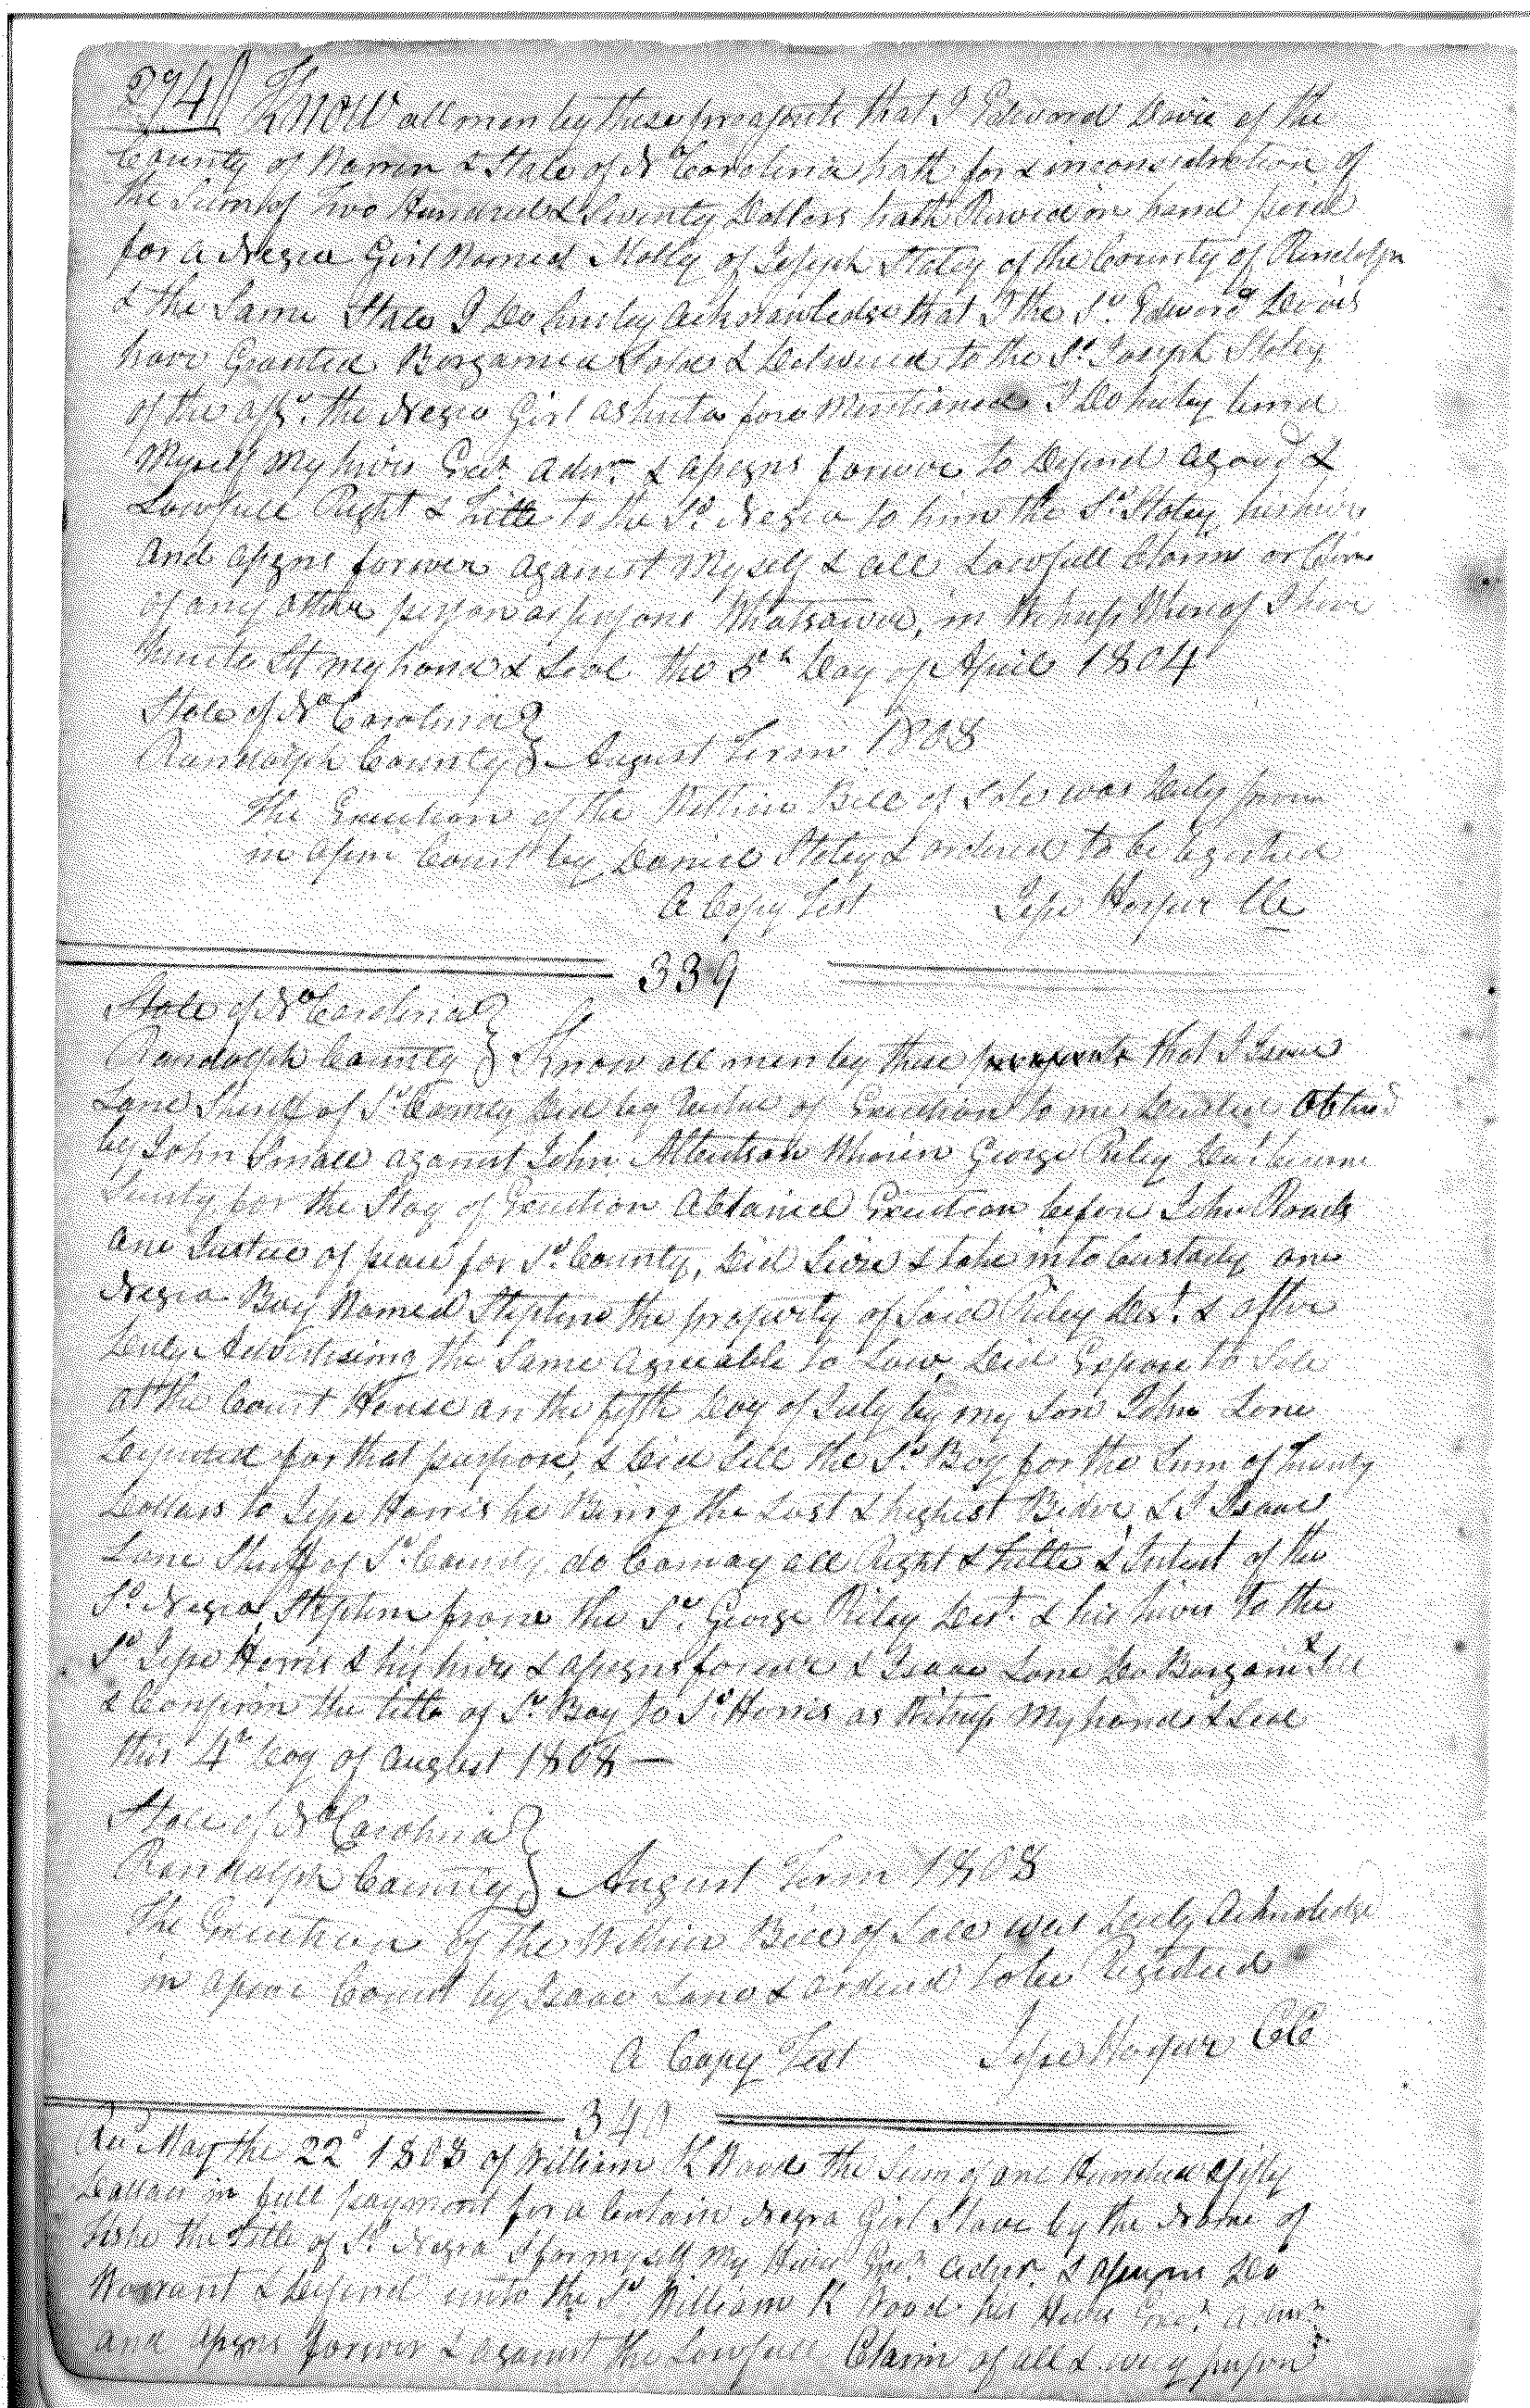 274 Know all men by these presents that I Edward Davis of the
County of Warren & State of No Carolina hath for & in consideration of
the Sum of Two Hundred & Seventy Dollars hath Received in hand paid
for a Negro Girl Named Molly of Joseph Staley of the County of Randolph
& the Same State I Do hereby Acknowledge that I the Sd. Edward Davis
have Granted Bargained Sold & Delivered to the Sd. Joseph Staley
of the afsd. the Negro Girl as hereto fore Mentioned I Do hereby bind
Myself My heirs Exrs. Admrs. & assigns forever to Defend a good &
Lawfull Right & Title to the Sd. Negro to him the Sd. Staley his heirs
And assigns forever against Myself & all Lawfull Claims or
of any other person or persons Whatsoever, in Witness Whereof I have
hereunto Set my hand & Seal the 5th Day of April 1804
State of No Carolina }
Randolph County } August Term 1808
The Execution of the Within Bill of Sale was Duly proven
in open Court by Daniel Staley & ordered to be registered
A Copy Test Jesse Harper Clk
339
State of No Carolina }
Randolph County } Know all men by these presents that I Isaac
Lane Sheriff of Sd. County Did by Virtue of Execution to me Directed Obtned
by John Small against John Wherein George Riley Decd. became
Surity for the Stay of Execution Obtained Execution before John
one Justice of peace for Sd. County, Did Seize & take into Custady one
Negro Boy Named Stephen the property of Said Riley Decd. & after
Duly Advertiseing the Same agreeable to Law, Did Expose to Sale
at the Court House on the fifth Day of July by my Son John Lane
Deputed for that purpose, & Did Sell the Sd. Boy for the Sum of Twenty
Dollars to Jesse Harris he Being the Last & highest Bider, & I Isaac
Lane Sheriff of Sd. County do Convay all Right & Title & Intrest of the
Sd. Negro Stephen from the Sd. George Riley Decd. & his heirs to the
Sd. Jesse Harris & his heirs & assigns forever & Isaac Lane Do Bargain & Sell
& Confirm the title of Sd. Boy to Sd. Harris as Witness My hand & Seal
this 4th Day of August 1808 —
State of No Carolina }
Randolph County } August Term 1808
The Execution of the Within Bill of Sale was Duly Acknoledge
in open Court by Isaac Lane & ordered to be Registered
A Copy Test Jesse Harper CC
340
Recd May the 22d 1808 of William K Wood the Sum of one Hundred & fifty
Dollars in full payment for a Certain Negro Girl Slave by the Name of
the Title of Sd. Negro I for myself My Heirs Exrs. Admrs. & assigns Do
Warrant & Defend unto the Sd William K Wood his Heirs Exrs. Admrs.
and assigns forever & against the Lawfull Claim of all & every person